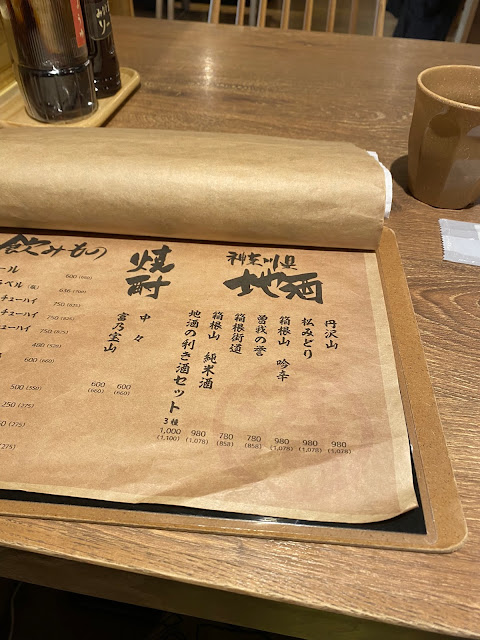 神奈川県
地酒
丹沢山 980 (1,078)
松みどり 980 (1,078)
箱根山 吟辛 980 (1,078)
曽我の誉 780 (858)
箱根街道 780 (858)
箱根山 純米酒 980 (1,078)
地酒の利き酒セット 3種 1,000 (1,100)
焼酎
中々 600 (660)
富乃宝山 600 (660)
飲みもの
ール 600 (660)
ラベル
チューハイ 750 (825)
チューハイ 750 (825)
チューハイ 750 (825)
480 (528)
600 (660)
500 (550)
250 (275)
(275)
(275)